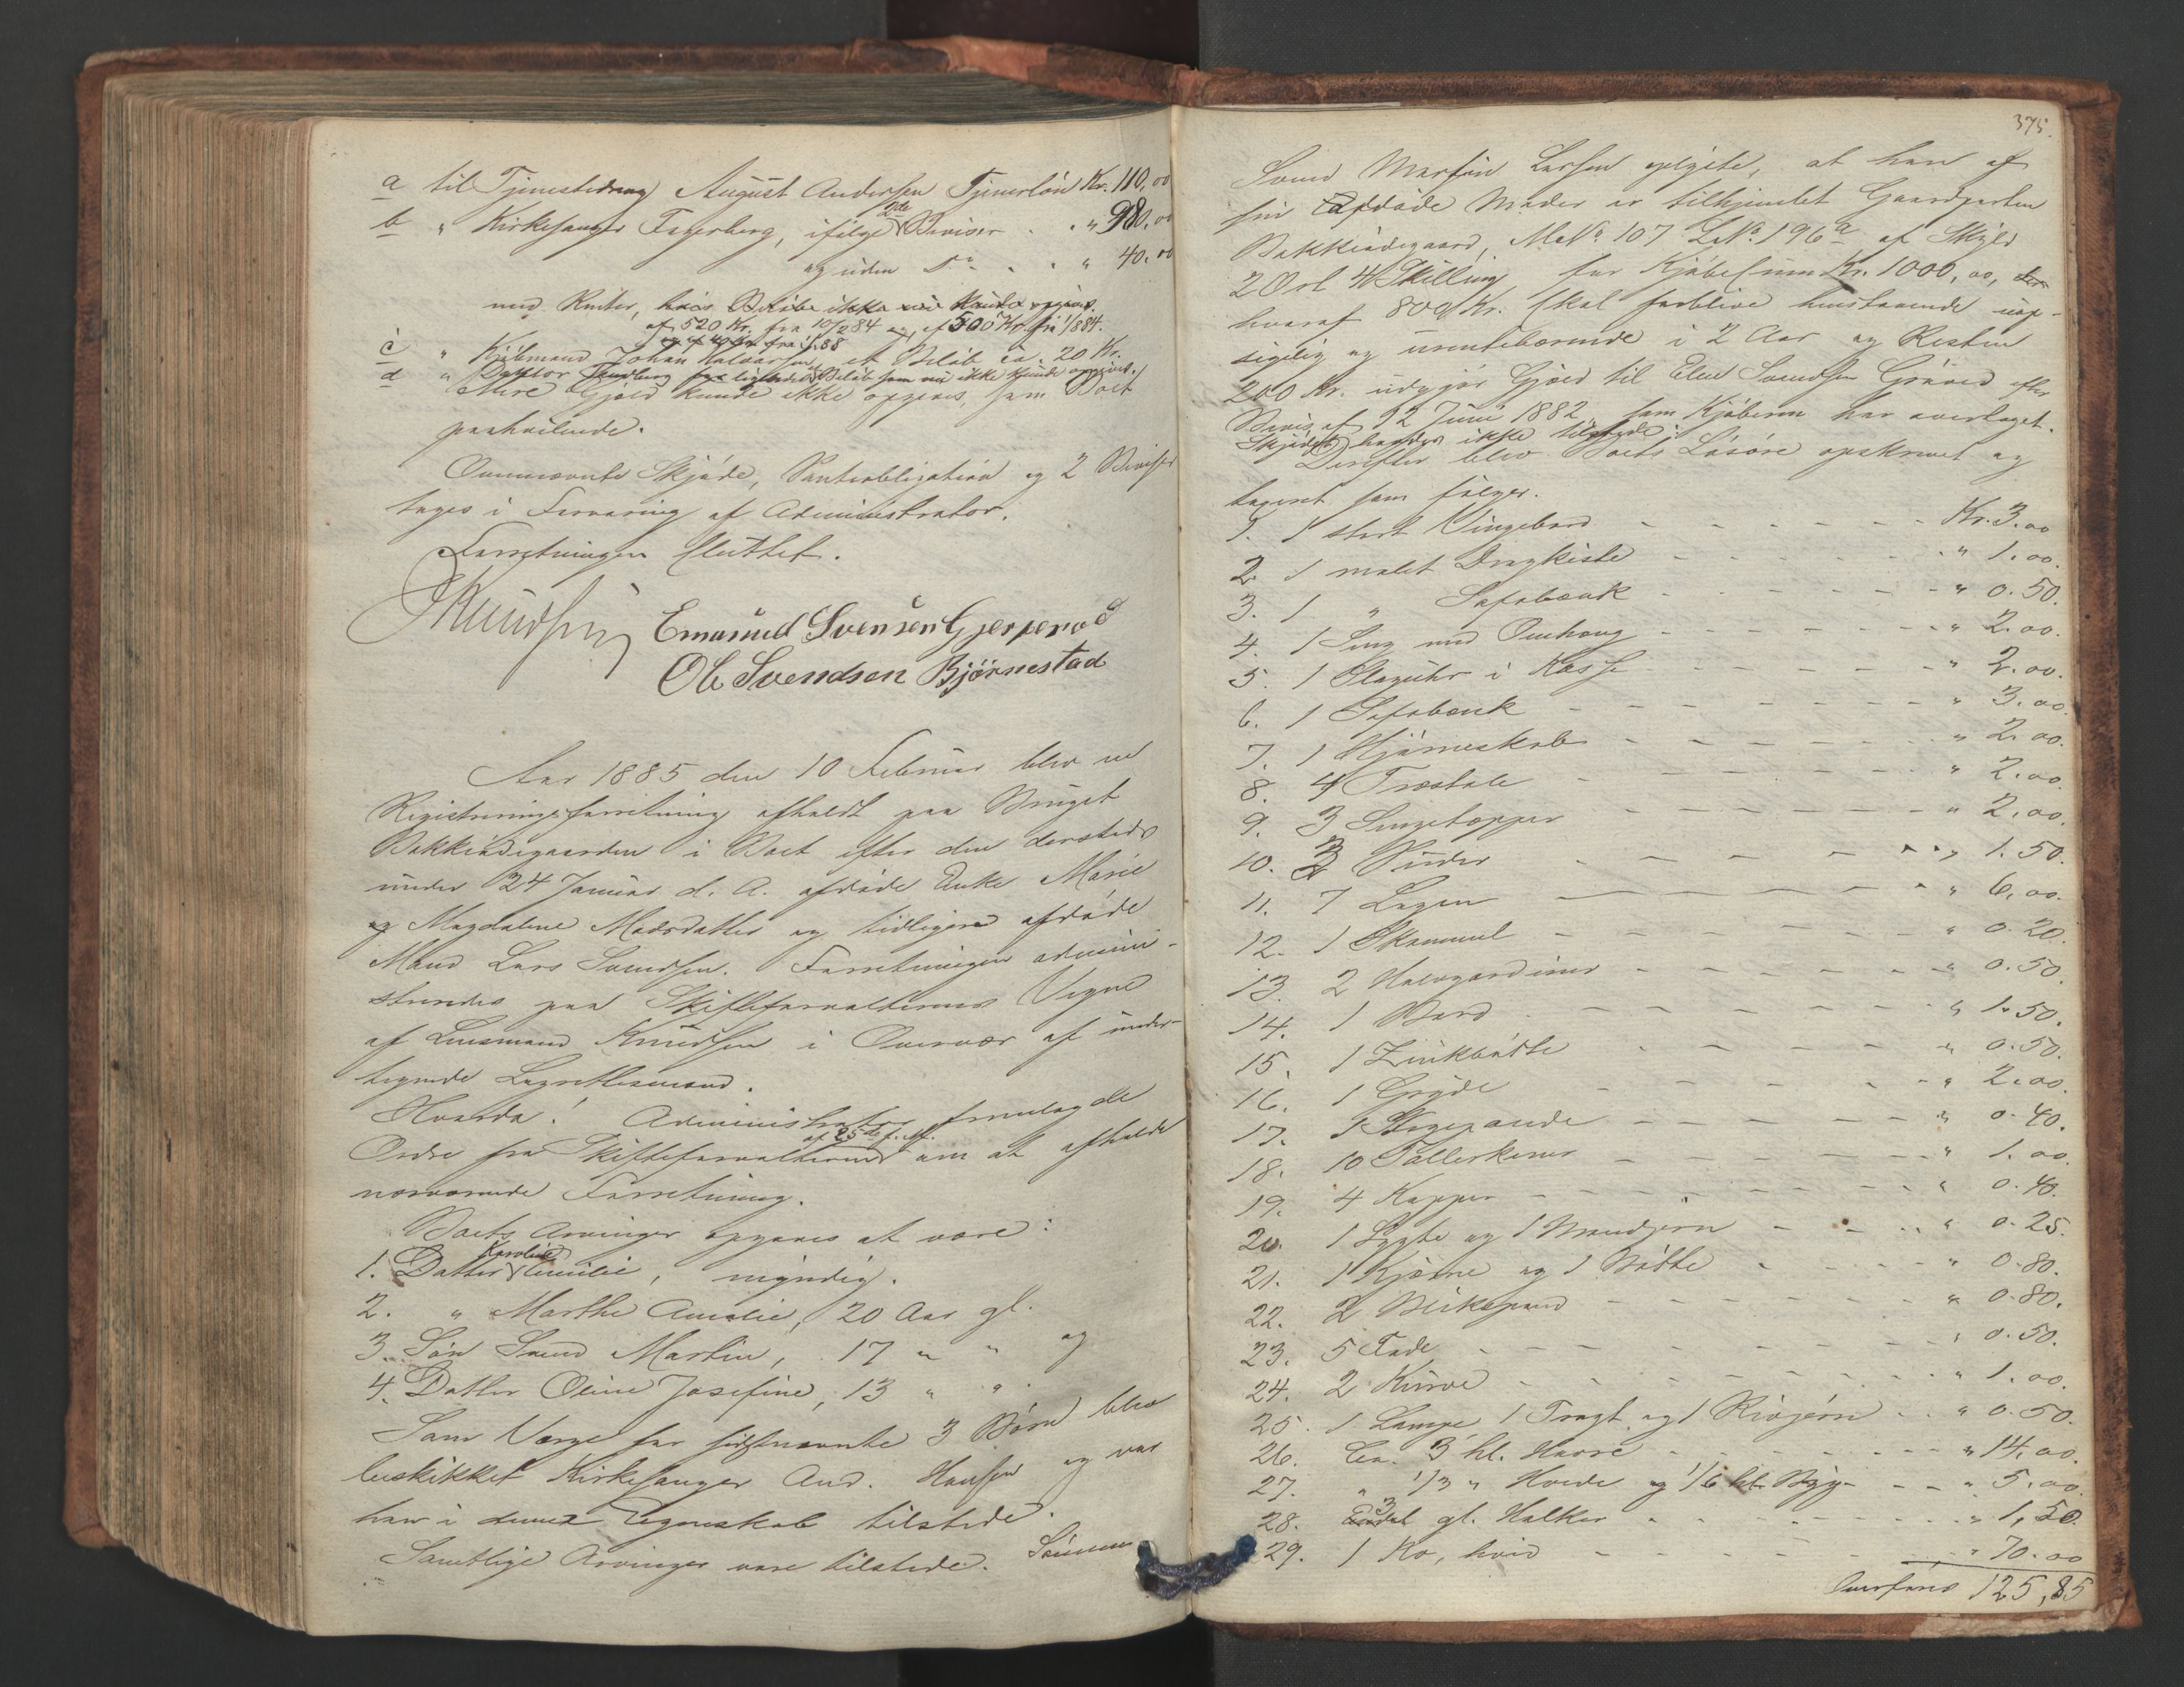 a til Tjenestedreng August Andersen Tjenerløn Kr. 110,00
b " Kirkesanger Fagerberg, ifølge 2de Beviser . . " 980.00
og uden Do . . . " 40.00
med Renter, hvis Beløb ikke nu kunde opgives
af 520 Kr. fra 10/2 84 og af 500 Kr. fra 1/1 884.
c " Kjøbmand Johan Halvorsen et Beløb ca. 20 Kr.
d " Doktor Sandberg lignende Beløb som nu ikke kunde opgives.
Mere Gjæld kunde ikke opgives, som Boet
paahvilende.
Ovennævnte Skjøde, Pantobligation og 2 Beviser
toges i Forvaring af Administrator.
Forretningen sluttet.
Knudsen
Emanuel Svensen Gjerperød
Ole Svendsen Bjørnestad
Aar 1885 den 10 Februar blev en
Registreringsforretning afholdt paa Bruget
Bakkeødegaarden i Boet efter den dersteds
under 24 Januar d. A. afdøde Enke Marie
og Magdalene Madsdatter og tidligere afdøde
Mand Lars Svendsen. Forretningen admini-
streredes paa Skifteforvalterens Vegne
af Lensmand Knudsen i Overvær af under-
tegnede Lagrettesmænd.
Hvorda! Administrator fremlagde
Ordre fra Skifteforvalteren af 25de f. M. om at afholde
nærværende Forretning.
Boets Arvinger opgaves at være:
1. Datter Karoline Emilie, myndig.
2. " Marthe Amalie, 20 Aar gl.
3. Søn Svend Martin, 17 " " og
4. Datter Oline Josefine, 13 " "
Som Værge for sidstnævnte 3 Børn blev
beskikket Kirkesanger And. Hansen og var
han i denne Egenskab tilstede.
Samtlige Arvinger vare tilstede. Sønnen
375.
Svend Martin Larsen oplyste, at han af
sin afdøde Moder er tilhjemlet Gaardparten
Bakkeødegaard, M.No. 107 L.No. 196a af Skyld
2 Ort 4 Skilling for Kjøbesum Kr. 1000,00,
hvoraf 800 Kr. skal forblive henstaaende uop-
sigelig og urentebærende i 2 Aar og Resten
200 Kr. udgjør Gjæld til Elen Svendsen Grøved efter
Bevis af 12 Juni 1882, som Kjøberen har overtaget.
Skjødet havdes ikke tilstede.
Derefter blev Boets Løsøre opskrevet og
taxeret som følger.
1. 1 stort Vingebord - - - Kr. 3.00
2. 1 malet Dragkiste - - - " 1.00.
3. 1 " Sofabænk - - - " 0.50.
4. 1 Seng med Omhang - - - " 2.00.
5. 1 Slaguhr i Kasse - - - " 2.00.
6. 1 Sofabænk - - - " 3.00
7. 1 Hjørneskab - - - " 2.00.
8. 4 Træstole - - - " 2.00.
9. 3 Sengetepper - - - " 2.00.
10. 3 Puder - - - " 1.50.
11. 7 Lagen - - - " 6.00.
12. 1 Skammel - - - " 0.20.
13. 2 Halvgardiner - - - " 0.50.
14. 1 Bord - - - " 1.50.
15. 1 Zinkbøtte - - - " 0.50.
16. 1 Gryde - - - " 2.00.
17. 1 Stegepande - - - " 0.40.
18. 10 Tallerkener - - - " 1.00.
19. 4 Kopper - - - " 0.40.
20. 1 Lygte og 1 Brændjern - - - " 0.25.
21. 1 Kjærne og 1 Bøtte - - - " 0.80.
22. 2 Blikspand - - - " 0.80.
23. 5 Fade - - - " 0.50.
24. 2 Kurve - - - " 1.00.
25. 1 Lampe, 1 Tragt og 1 Rivjern . . " 0.50.
26. Ca. 3 hl. Havre - - - " 14.00.
27. " 1/3 " Hvede og 1/6 hl. Byg - - - " 5.00.
28. 3 gl. Halker - - - " 1,50.
29. 1 Ko, hvid - - - " 70.00
Overføres 125,85